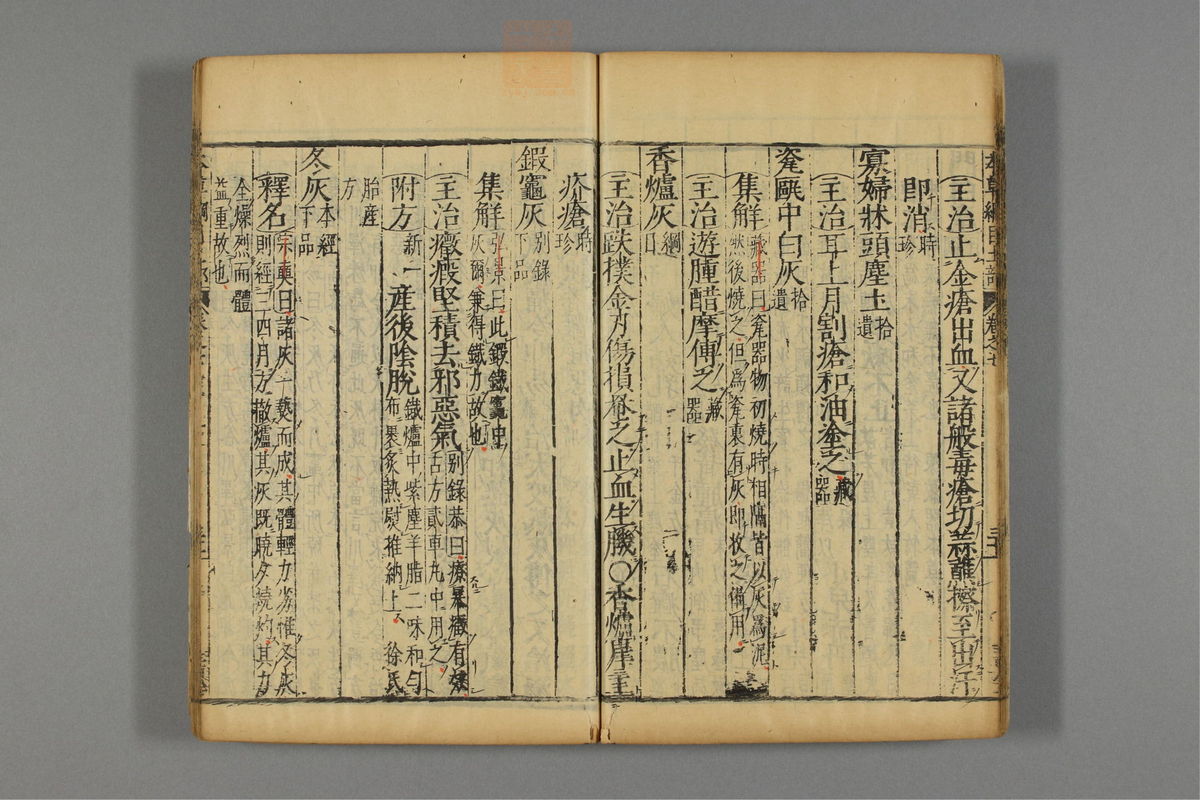 主治止金瘡出血又諸般毒瘡切蒜蘸擦至出汗
即消時珍
寡婦牀頭塵土拾遺
主治耳上月割瘡和油塗之藏器
瓷甌中白灰拾遺
集解藏器曰瓷器物初燒時相隔皆以灰爲泥
然後燒之但爲瓷裏有灰即收之備用
主治遊腫醋摩傅之藏器
香爐灰綱目
主治跌撲金刃傷損罨之止血生肌○香爐岸主
疥瘡時珍
鍛竈灰别錄下品
集解弘景曰此鍛鐵竈中
灰爾兼得鐵力故也
主治癥瘕堅積去邪惡氣别錄恭曰療暴癥有效
古方貳車丸中用之
附方新一產後陰脫鐵爐中紫塵羊脂二味和勻
布裹炙熱熨推納上徐氏
胎產
方
冬灰本經下品
釋名宗奭曰諸灰一爇而成其體輕力劣惟冬灰
則經三四月方徹爐其灰既曉夕燒灼其力
全燥烈而體
益重故也